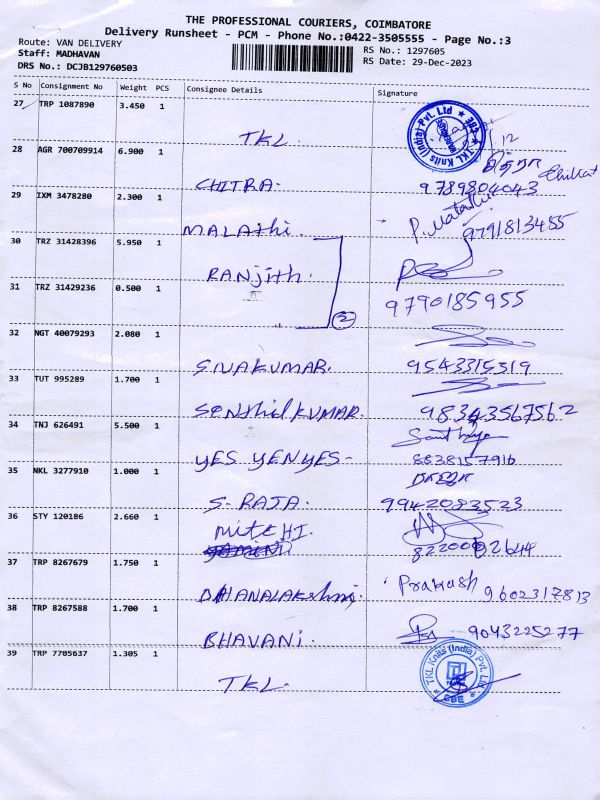 THE PROFESSIONAL COURIERS, COIMBATORE
Delivery Runsheet - PCM - Phone No.:0422-3505555 - Page No.:3
Route: VAN DELIVERY
Staff: MADHAVAN
DRS No.: DCJB129760503
RS No.: 1297605
RS Date: 29-Dec-2023
S No Consignment No Weight PCS Consignee Details Signature
27 TRP 1087890 3.450 1
TKL.
TKL Knits (India) Pvt. Ltd
28 AGR 700709914 6.900 1
CHITRA. 9789804043
29 IXM 3478280 2.300 1
MALAthi. 9791813455
30 TRZ 31428396 5.950 1
RANjith.
31 TRZ 31429236 0.500 1
9790185955
2
32 NGT 40079293 2.080 1
SIVAKUMAR. 9543315319
33 TUT 995289 1.700 1
SenthilKUMAR.
34 TNJ 626491 5.500 1
YES YENYES- 8838157916
35 NKL 3277910 1.000 1
S-RAJA. 9942083523
36 STY 120186 2.660 1
MitCHI.
37 TRP 8267679 1.750 1
DHANALAKshmi. Prakash 9602317813
38 TRP 8267588 1.700 1
BHAVANi. 9043225277
39 TRP 7705637 1.305 1
TKL.
TKL Knits (India) Pvt. Ltd
CBE